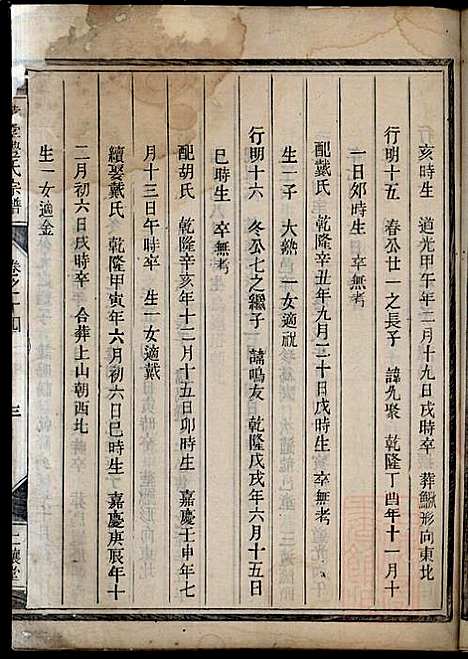 亥時生　道光甲午年二月十九日戌時卒　葬鰍形向東北
行明十五　春公廿一之長子　諱九聚　乾隆丁酉年十一月十
一日夘時生　卒無考
配戴氏　乾隆辛丑年九月三十日戌時生　卒無考
生一子　大　一女適祝
行明十六　冬公七之繼子　諱鳴友　乾隆戊戌年六月十五日
巳時生　卒無考
配胡氏　乾隆辛亥年十二月十五日卯時生　嘉慶壬申年七
月十三日午時卒　生一女適戴
續娶戴氏　乾隆甲寅年六月初六日巳時生　嘉慶庚辰年十
二月初六日戌時卒　合葬上山朝西北
生一女適金
氏宗譜　卷之二十四　三　堂